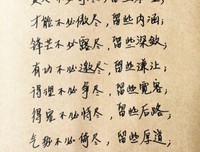 才能不必傲尽，留些内涵；
锋芒不必露尽，留些深敛；
有功不必邀尽，留些谦让；
得理不必争尽，留些宽容；
得宠不必恃尽，留些后路；
气势不必倚尽，留些厚道；